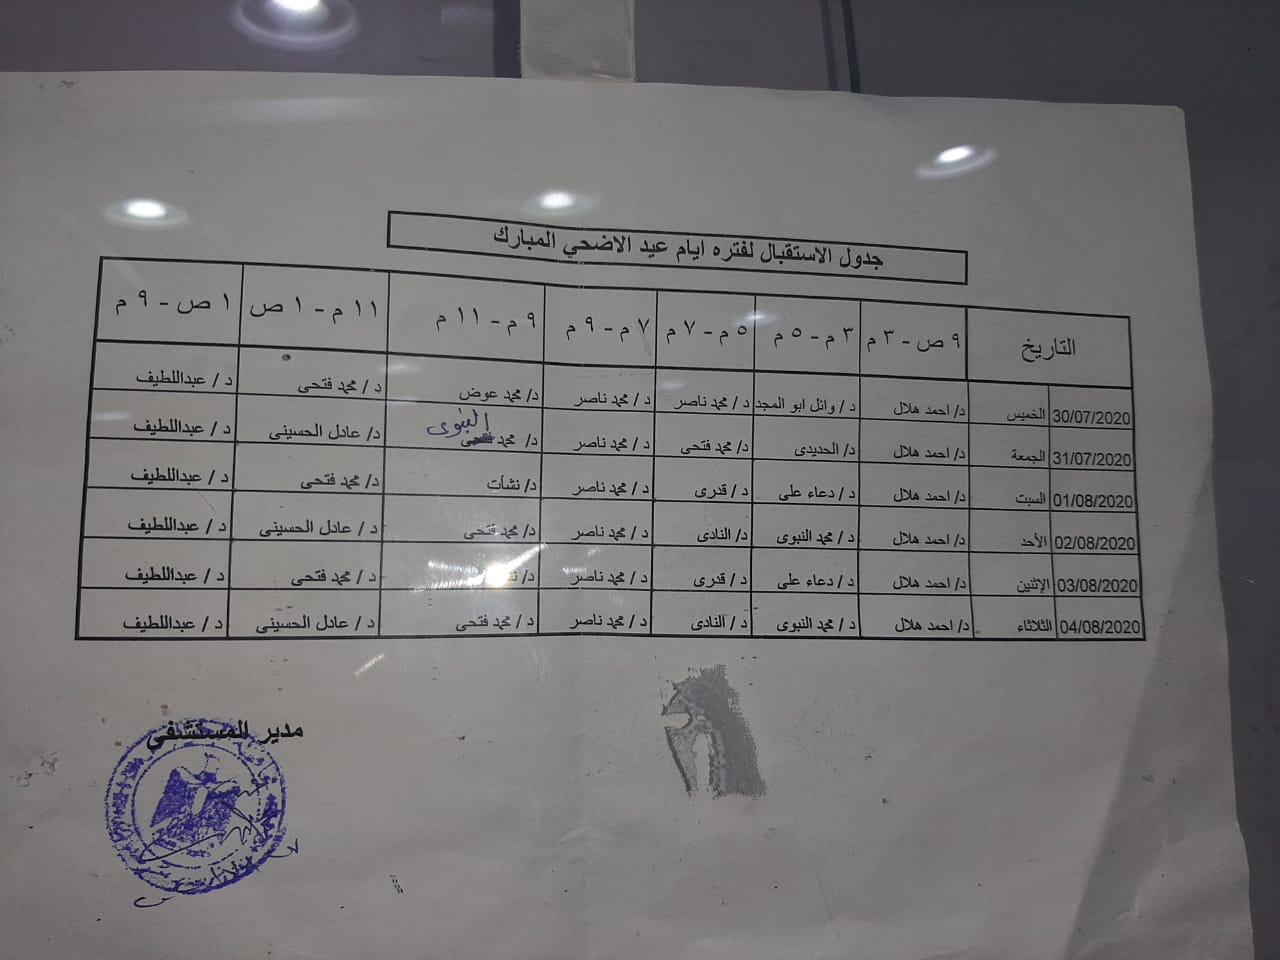 جدول الاستقبال لفتره ايام عيد الاضحي المبارك
التاريخ ٩ ص - ٣ م ٣ م - ٥ م ٥ م - ٧ م ٧ م - ٩ م ٩ م - ١١ م ١١ م - ١ ص ١ ص - ٩ م
30/07/2020 الخميس د/ احمد هلال د / وائل ابو المجد د / محمد ناصر د / محمد ناصر د/ محمد عوض د / محمد فتحى د / عبداللطيف
31/07/2020 الجمعة د/ احمد هلال د/ الحديدى د / محمد فتحى د / محمد ناصر د/ محمد فتحى النبوى د/ عادل الحسينى د / عبداللطيف
01/08/2020 السبت د/ احمد هلال د / دعاء على د / قدرى د / محمد ناصر د/ نشأت د/ محمد فتحى د / عبداللطيف
02/08/2020 الأحد د/ احمد هلال د / محمد النبوى د/ النادى د / محمد ناصر د/ محمد فتحى د / عادل الحسينى د / عبداللطيف
03/08/2020 الإثنين د/ احمد هلال د / دعاء على د / قدرى د / محمد ناصر د/ د / محمد فتحى د / عبداللطيف
04/08/2020 الثلاثاء د/ احمد هلال د / محمد النبوى د / النادى د / محمد ناصر د / محمد فتحى د / عادل الحسينى د / عبداللطيف
مدير المستشفي